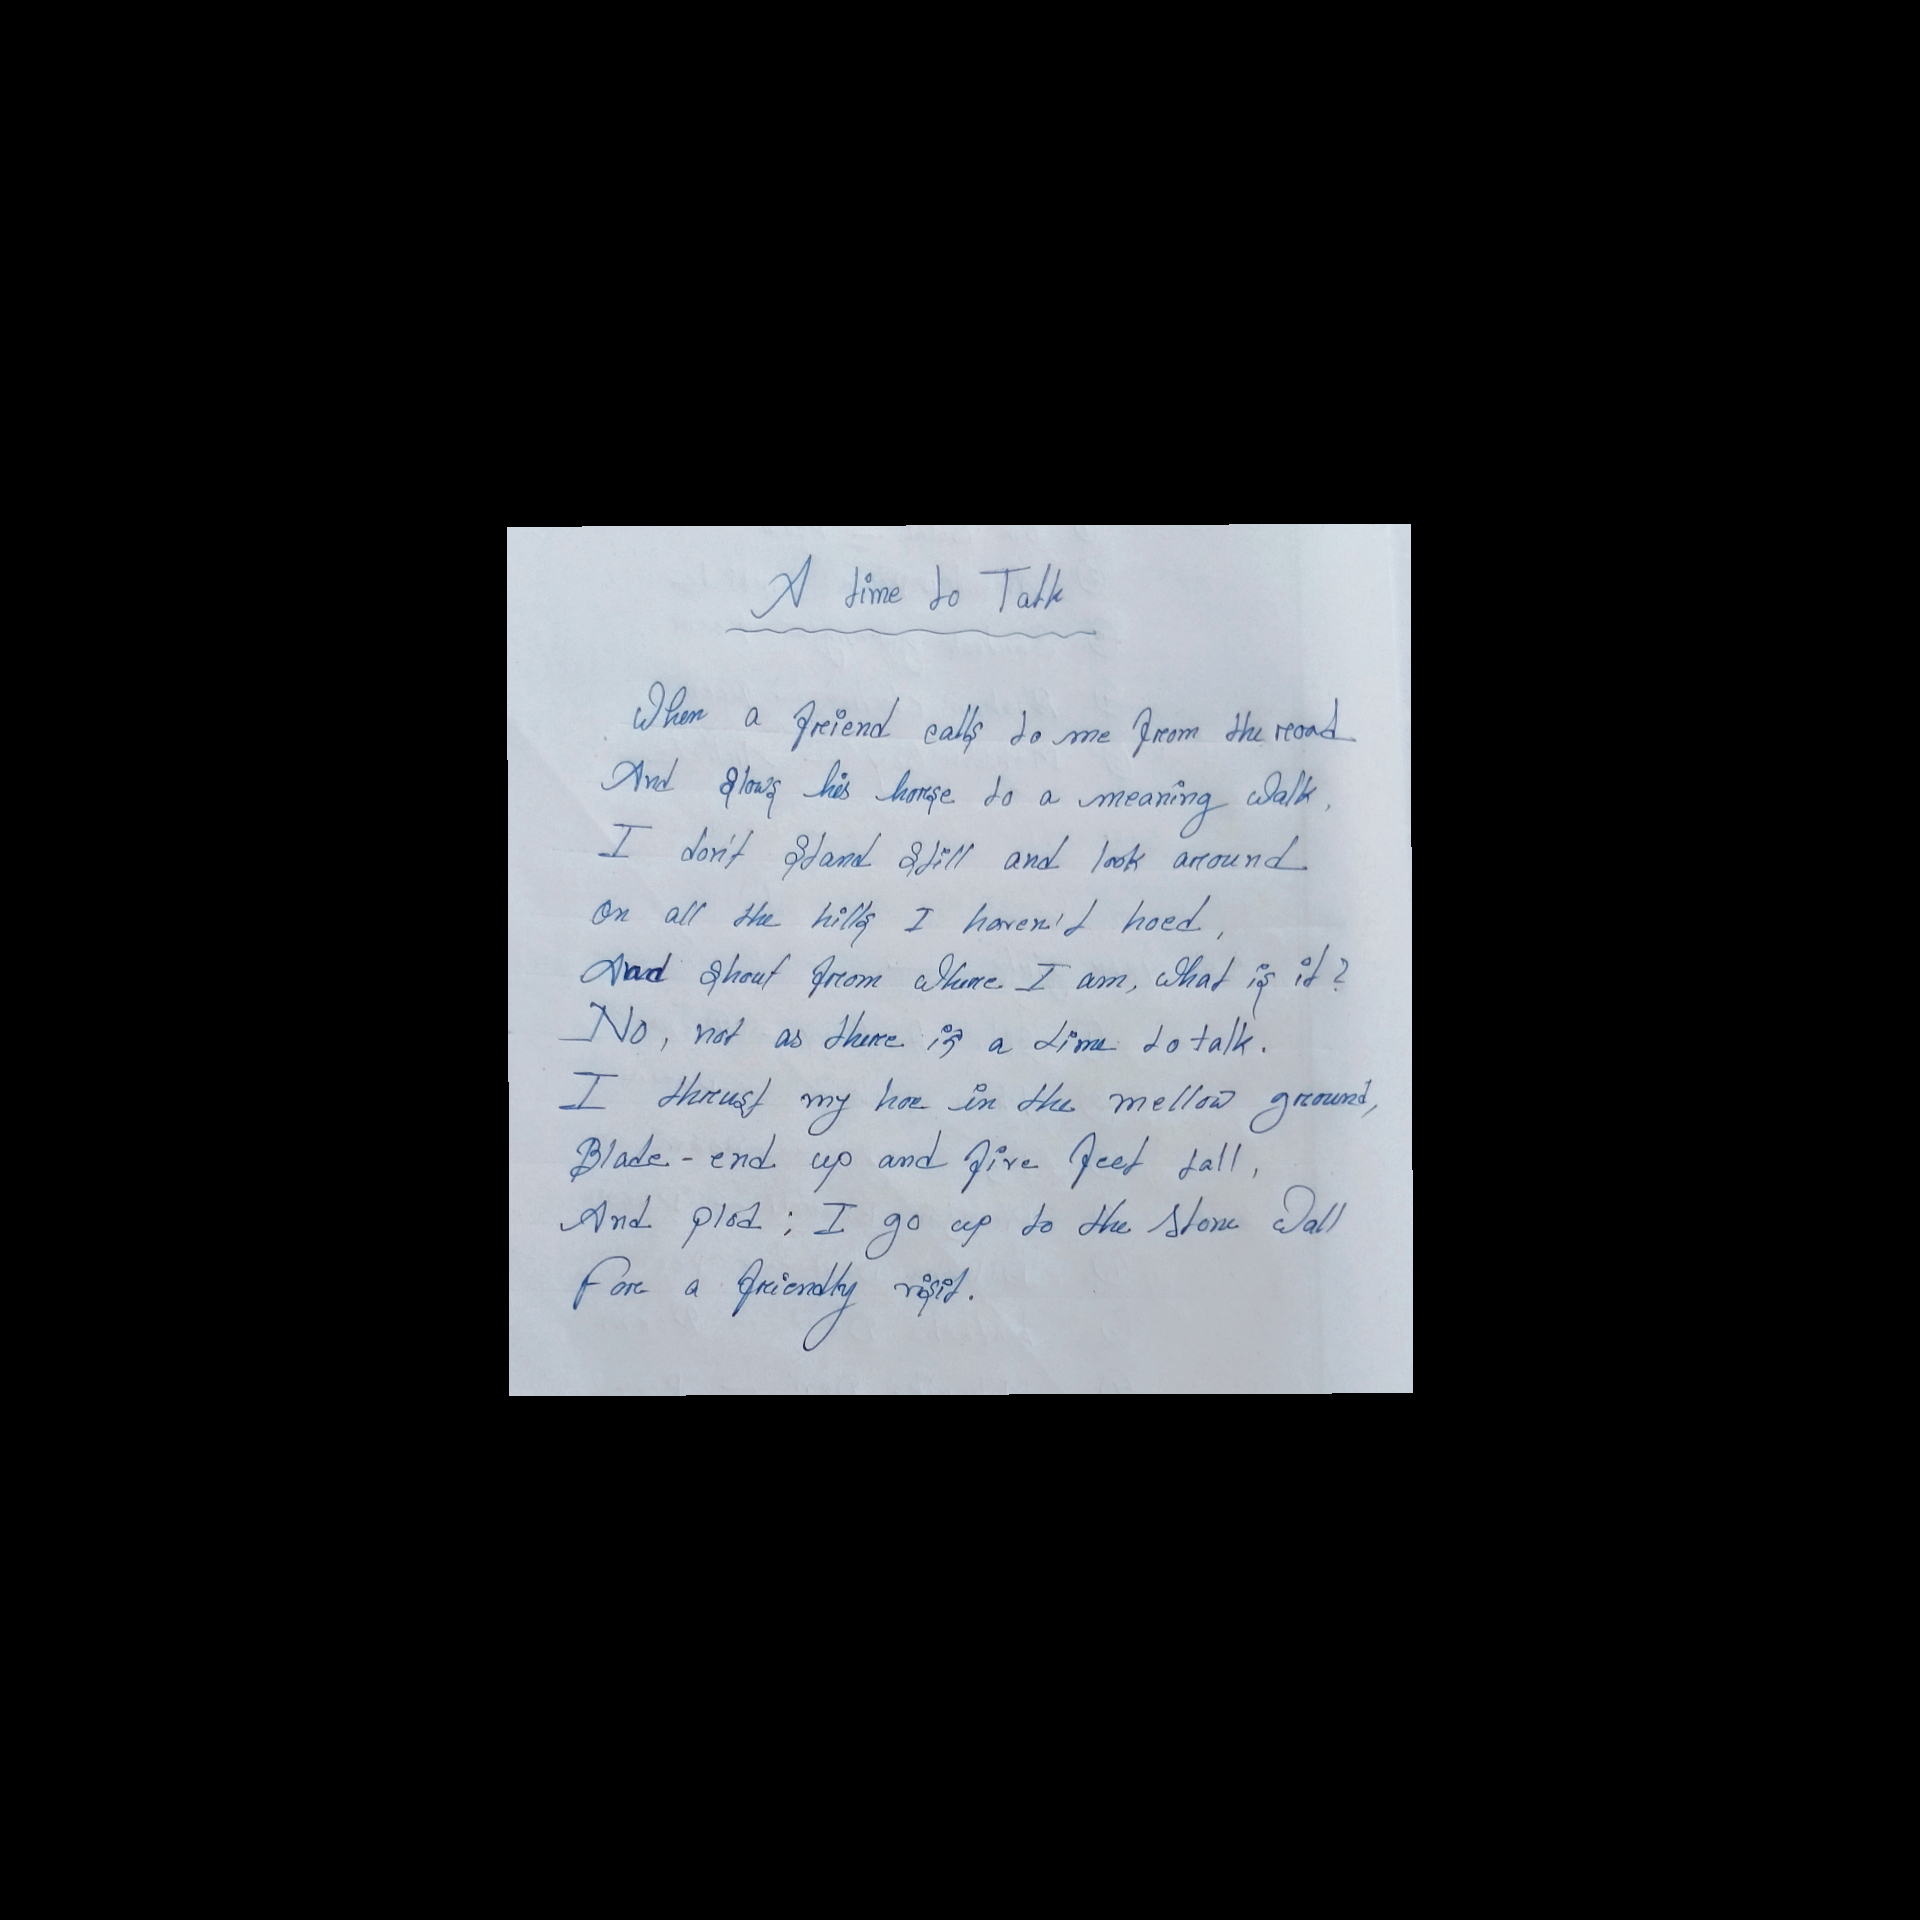 A time to Talk
When a friend calls to me from the road
And slows his horse to a meaning walk,
I don't stand still and look around
On all the hills I haven't hoed,
And shout from where I am, What is it?
No, not as there is a time to talk.
I thrust my hoe in the mellow ground,
Blade-end up and five feet tall,
And plod; I go up to the stone wall
For a friendly visit.